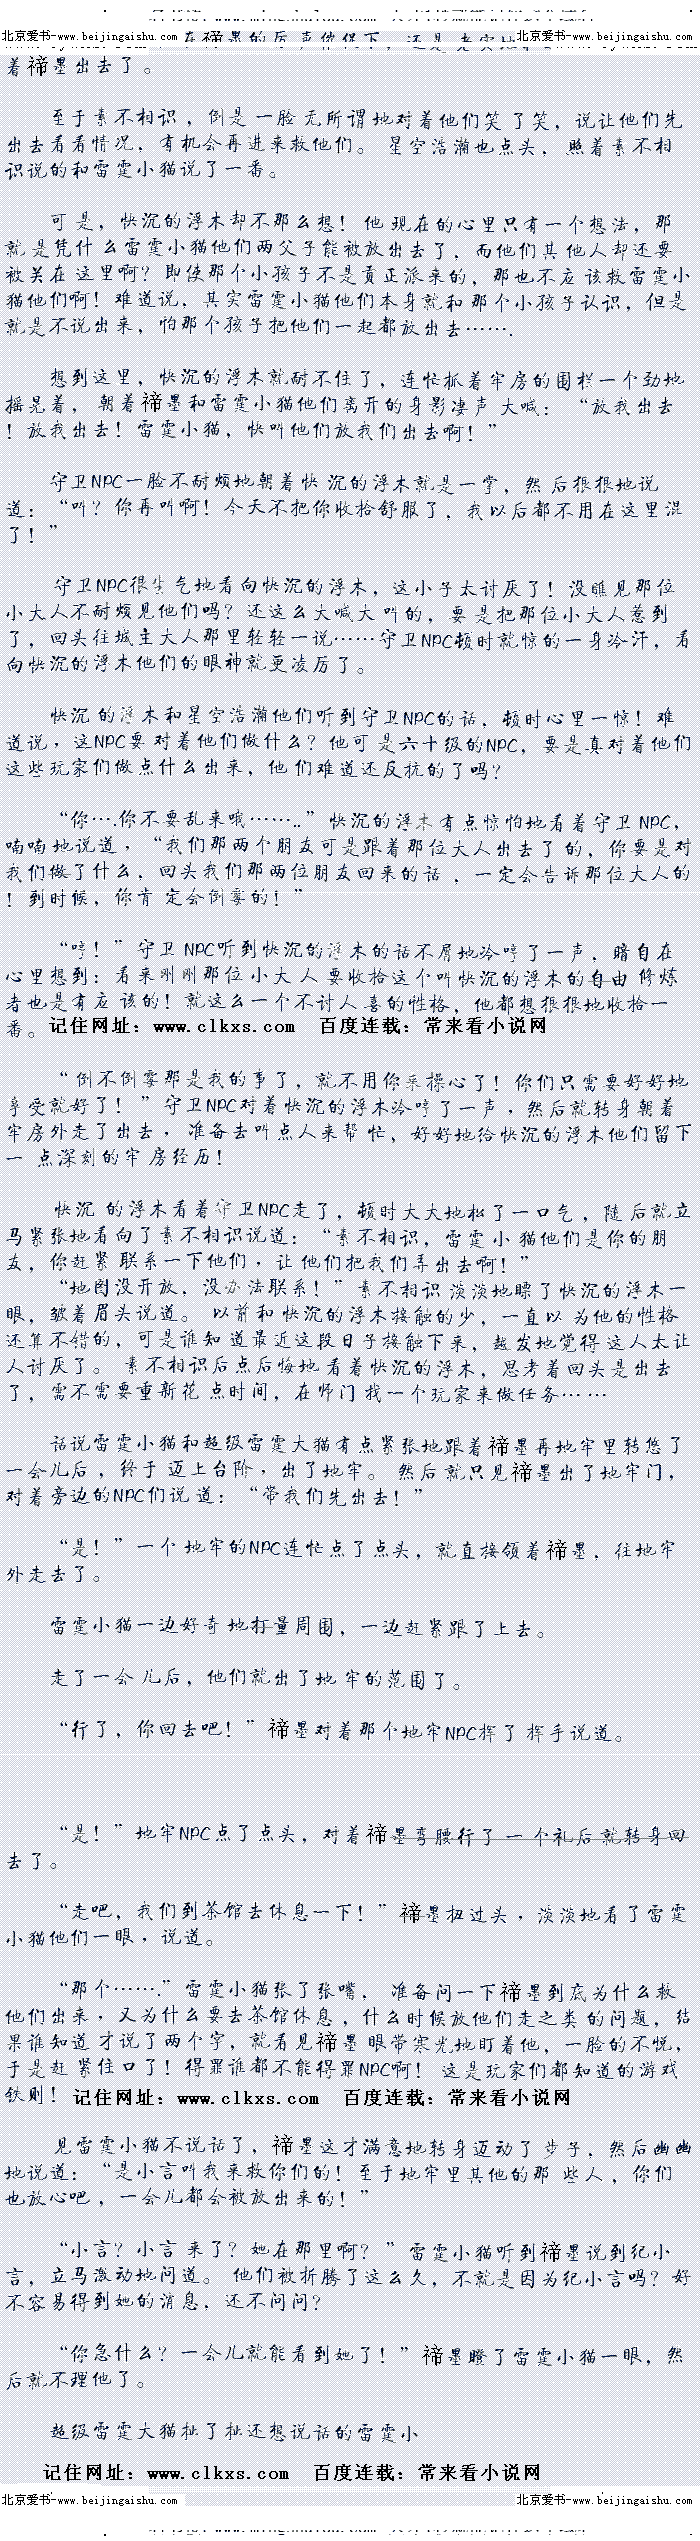 北京爱书-www.beijingaishu.com 北京爱书-www.beijingaishu.com
着禘墨出去了。
至于素不相识，倒是一脸无所谓地对着他们笑了笑，说让他们先
出去看看情况，有机会再进来救他们。星空浩瀚也点头，照着素不相
识说的和雷霆小猫说了一番。
可是，快沉的浮木却不那么想！他现在的心里只有一个想法，那
就是凭什么雷霆小猫他们两父子能被放出去了，而他们其他人却还要
被关在这里啊？即使那个小孩子不是贡正派来的，那也不应该救雷霆小
猫他们啊！难道说，其实雷霆小猫他们本身就和那个小孩子认识，但是
就是不说出来，怕那个孩子把他们一起都放出去…….
想到这里，快沉的浮木就耐不住了，连忙抓着牢房的围栏一个劲地
摇晃着，朝着禘墨和雷霆小猫他们离开的身影凄声大喊：“放我出去
！放我出去！雷霆小猫，快叫他们放我们出去啊！”
守卫NPC一脸不耐烦地朝着快沉的浮木就是一掌，然后狠狠地说
道：“叫？你再叫啊！今天不把你收拾舒服了，我以后都不用在这里混
了！”
守卫NPC很生气地看向快沉的浮木，这小子太讨厌了！没瞧见那位
小大人不耐烦见他们吗？还这么大喊大叫的，要是把那位小大人惹到
了，回头往城主大人那里轻轻一说……守卫NPC顿时就惊的一身冷汗，看
向快沉的浮木他们的眼神就更凌厉了。
快沉的浮木和星空浩瀚他们听到守卫NPC的话，顿时心里一惊！难
道说，这NPC要对着他们做什么？他可是六十级的NPC，要是真对着他们
这些玩家们做点什么出来，他们难道还反抗的了吗？
“你….你不要乱来哦……..”快沉的浮木有点惊怕地看着守卫NPC，
喃喃地说道，“我们那两个朋友可是跟着那位大人出去了的，你要是对
我们做了什么，回头我们那两位朋友回来的话，一定会告诉那位大人的
！到时候，你肯定会倒霉的！”
“哼！”守卫NPC听到快沉的浮木的话不屑地冷哼了一声，暗自在
心里想到：看来刚刚那位小大人要收拾这个叫快沉的浮木的自由修炼
者也是有应该的！就这么一个不讨人喜的性格，他都想狠狠地收拾一
番。记住网址：www.clkxs.com 百度连载：常来看小说网
“倒不倒霉那是我的事了，就不用你来操心了！你们只需要好好地
享受就好了！”守卫NPC对着快沉的浮木冷哼了一声，然后就转身朝着
牢房外走了出去，准备去叫点人来帮忙，好好地给快沉的浮木他们留下
一点深刻的牢房经历！
快沉的浮木看着守卫NPC走了，顿时大大地松了一口气，随后就立
马紧张地看向了素不相识说道：“素不相识，雷霆小猫他们是你的朋
友，你赶紧联系一下他们，让他们把我们弄出去啊！”
“地图没开放，没办法联系！”素不相识淡淡地瞟了快沉的浮木一
眼，皱着眉头说道。以前和快沉的浮木接触的少，一直以为他的性格
还算不错的，可是谁知道最近这段日子接触下来，越发地觉得这人太让
人讨厌了。素不相识后点后悔地看着快沉的浮木，思考着回头是出去
了，需不需要重新花点时间，在师门找一个玩家来做任务……
话说雷霆小猫和超级雷霆大猫有点紧张地跟着禘墨再地牢里转悠了
一会儿后，终于迈上台阶，出了地牢。然后就只见禘墨出了地牢门，
对着旁边的NPC们说道：“带我们先出去！”
“是！”一个地牢的NPC连忙点了点头，就直接领着禘墨，往地牢
外走去了。
雷霆小猫一边好奇地打量周围，一边赶紧跟了上去。
走了一会儿后，他们就出了地牢的范围了。
“行了，你回去吧！”禘墨对着那个地牢NPC挥了挥手说道。
“是！”地牢NPC点了点头，对着禘墨弯腰行了一个礼后就转身回
去了。
“走吧，我们到茶馆去休息一下！”禘墨扭过头，淡淡地看了雷霆
小猫他们一眼，说道。
“那个…….”雷霆小猫张了张嘴，准备问一下禘墨到底为什么救
他们出来，又为什么要去茶馆休息，什么时候放他们走之类的问题，结
果谁知道才说了两个字，就看见禘墨眼带寒光地盯着他，一脸的不悦，
于是赶紧住口了！得罪谁都不能得罪NPC啊！这是玩家们都知道的游戏
铁则！记住网址：www.clkxs.com 百度连载：常来看小说网
见雷霆小猫不说话了，禘墨这才满意地转身迈动了步子，然后幽幽
地说道：“是小言叫我来救你们的！至于地牢里其他的那些人，你们
也放心吧，一会儿都会被放出来的！”
“小言？小言来了？她在那里啊？”雷霆小猫听到禘墨说到纪小
言，立马激动地问道。他们被折腾了这么久，不就是因为纪小言吗？好
不容易得到她的消息，还不问问？
“你急什么？一会儿就能看到她了！”禘墨瞪了雷霆小猫一眼，然
后就不理他了。
超级雷霆大猫扯了扯还想说话的雷霆小
记住网址：www.clkxs.com 百度连载：常来看小说网
北京爱书-www.beijingaishu.com 北京爱书-www.beijingaishu.com